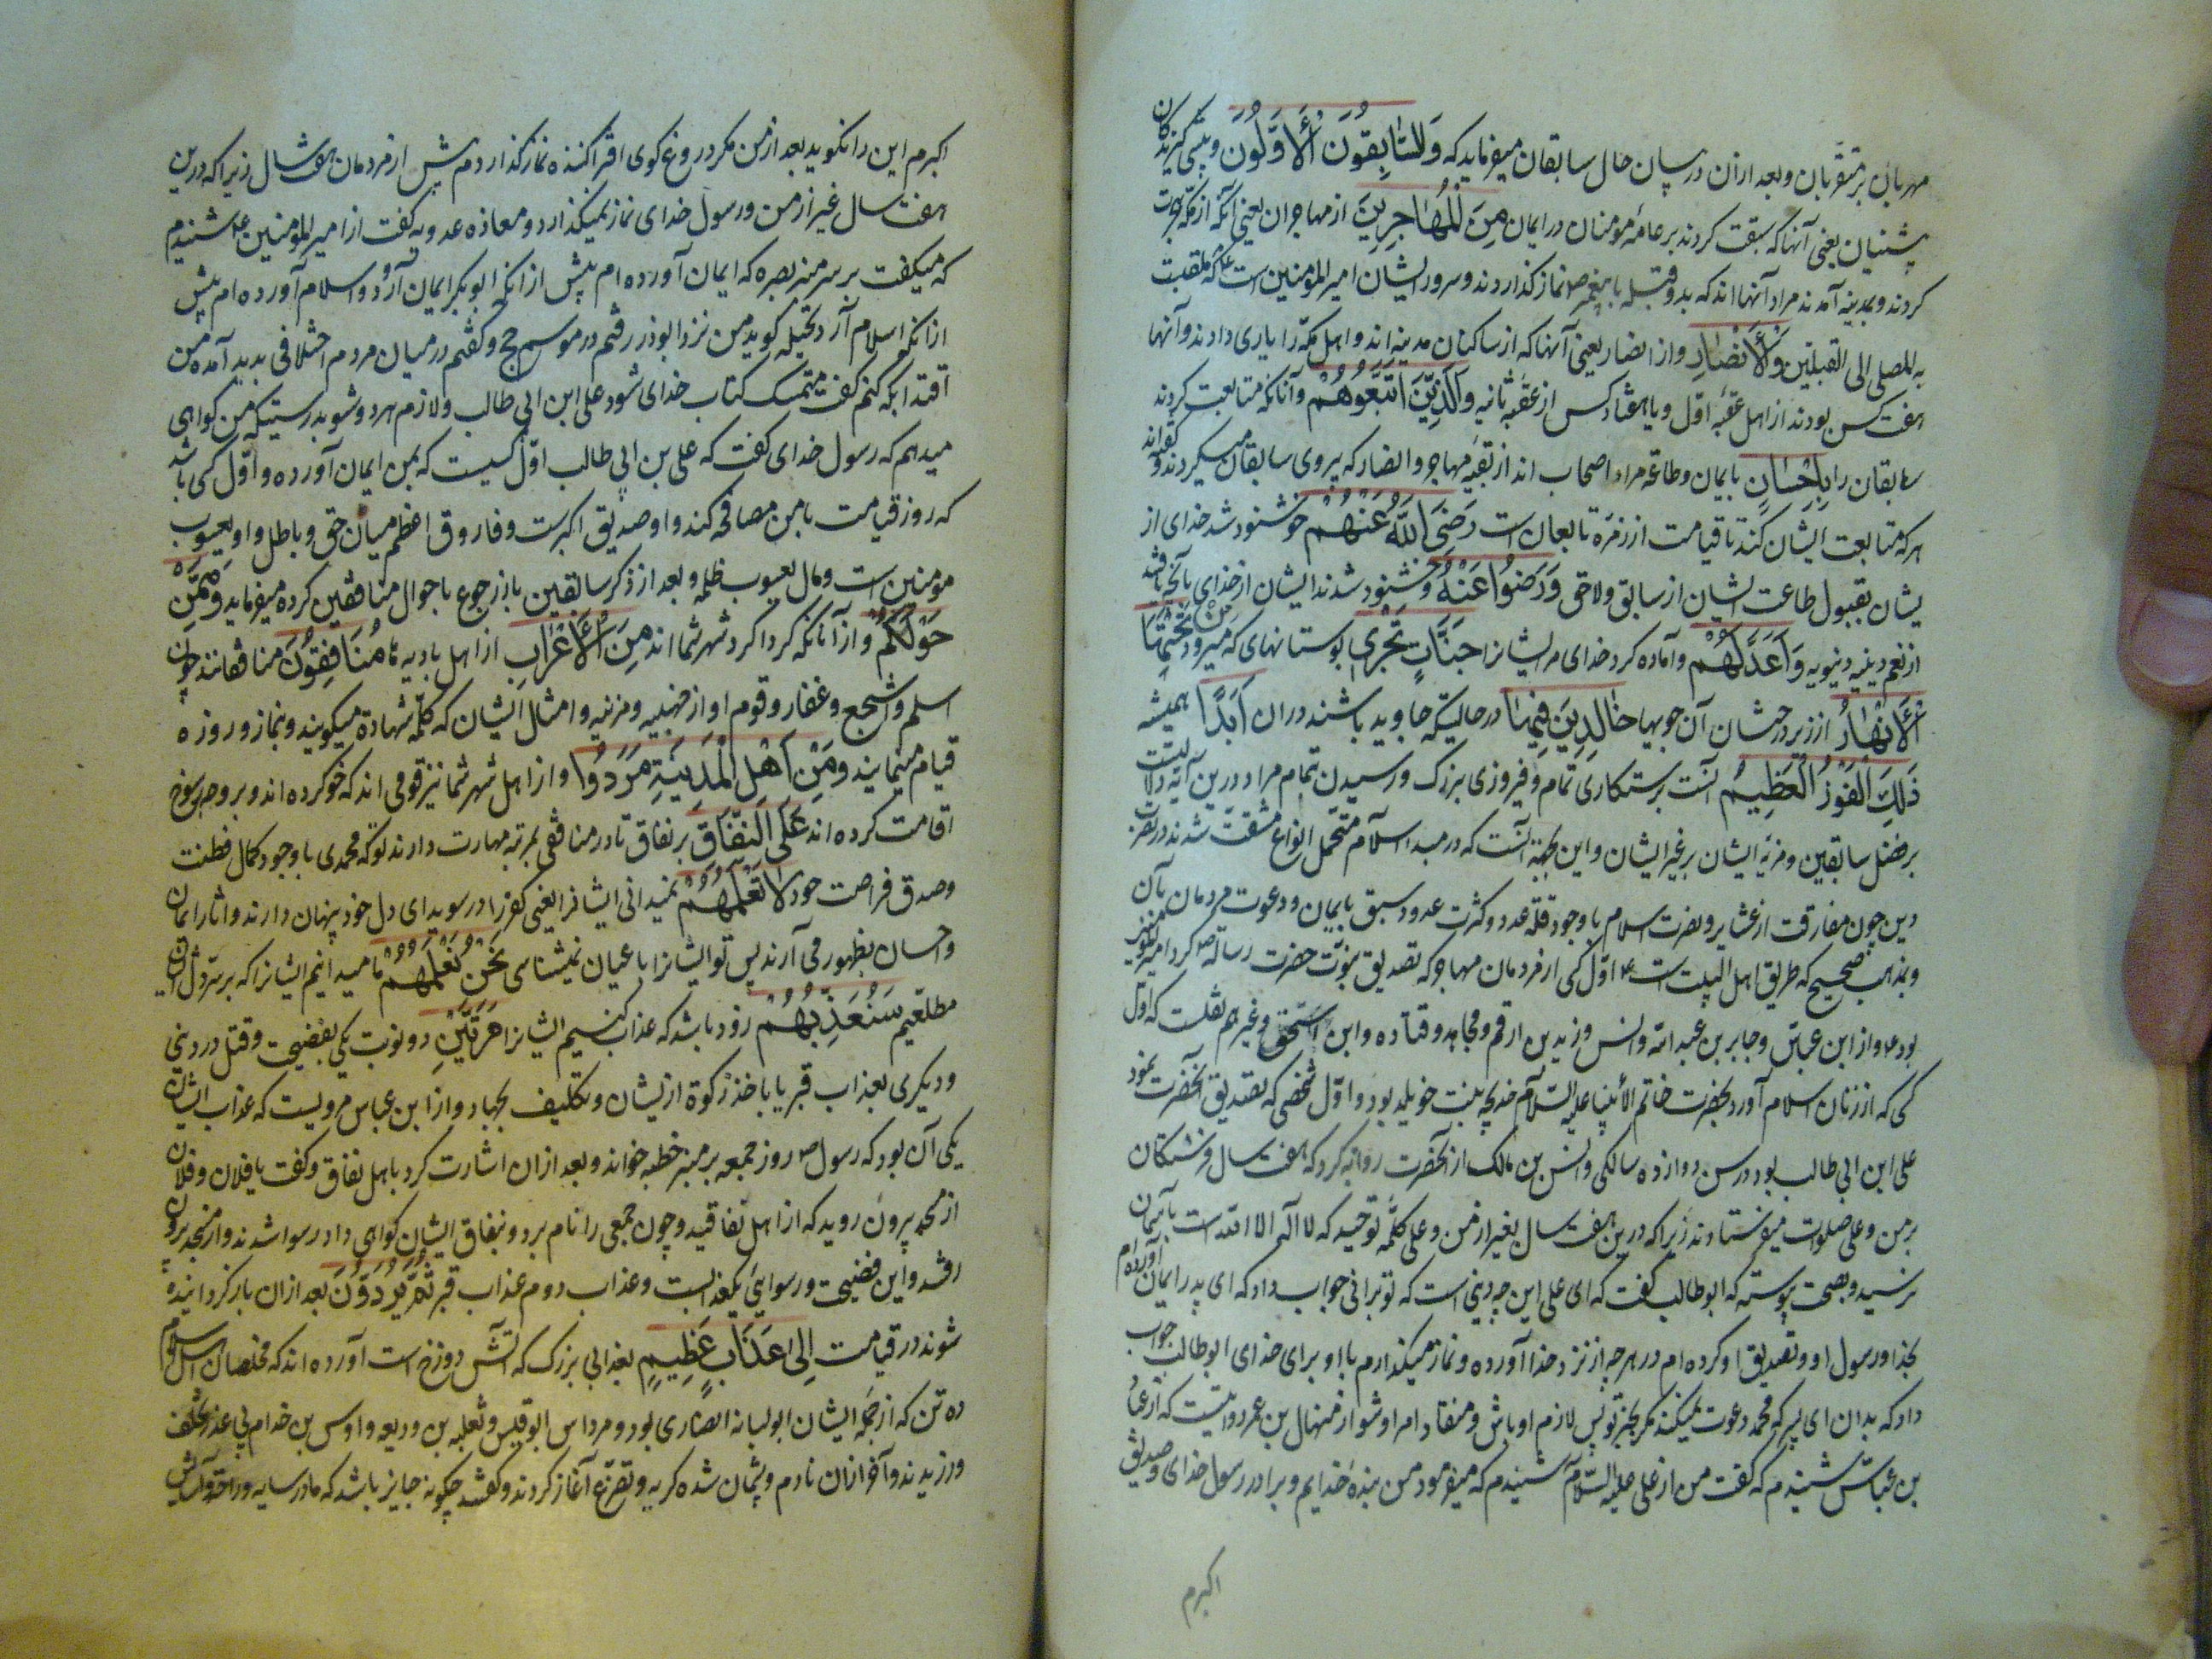 مهربان بر متقربان و بعد ازان در بیان حال سابقان میفرماید که وَالسَّابِقُونَ الْأَوَّلُونَ و پیشی گیرندکان
پیشینیان یعنی آنها که سبقت کردند بر عامهٔ مؤمنان در ایمان مِنَ الْمُهَاجِرِينَ از مهاجران یعنی آنکه از مکه هجرت
کردند و بمدینه آمدند مراد آنها اند که بدو قبله با پیغمبر ص نماز گذاردند و سرور ایشان امیر المؤمنین است ع که ملقبت
به المصلی الی القبلتین وَالْأَنْصَارِ و از انصار یعنی آنها که از ساکنان مدینه اند و اهل مکه را یاری دادند و آنها
هفت کس بودند از اهل عقبه اول و یا هفتاد کس از عقبه ثانیه وَالَّذِينَ اتَّبَعُوهُمْ و آنانکه متابعت کردند
سابقان را بِإِحْسَانٍ بایمان و طاعة مراد اصحاب اند از بقیهٔ مهاجر و انصار که پیروی سابقان میکردند و گفته اند
هر که متابعت ایشان کند تا قیامت از زمرهٔ تابعان است رَضِيَ اللَّهُ عَنْهُمْ خوشنود شد خدای از
یشان بقبول طاعت ایشان از سابق و لاحق وَرَضُوا عَنْهُ و خشنود شدند ایشان از خدای بآنچه یافتند
از نعم دینیه و دنیویه وَأَعَدَّ لَهُمْ و آماده کرد خدای مر ایشانرا جَنَّاتٍ تَجْرِي بوستانهای که میرود مِنْ تَحْتِهَا
الْأَنْهَارُ از زیر درختان آن جویها خَالِدِينَ فِيهَا در حالتیکه جاوید باشند در ان أَبَدًا همیشه
ذَلِكَ الْفَوْزُ الْعَظِيمُ آنست رستکاری تمام و فیروزی بزرک و رسیدن بتمام مراد و درین آیه دلالتست
بر فضل سابقین و مزیهٔ ایشان بر غیر ایشان و این بجهة آنست که در مبدء اسلام متحمل انواع مشقت شدند در نصرت
دین چون مفارقت از عشایر و نصرت اسلام با وجود قلة عدد و کثرت عدو و سبق بایمان و دعوت مردمان بآن
و بمذهب صحیح که طریق اهل البیت است ع اول کسی از مردمان مهاجر که تصدیق نبوت حضرت رسالة ص کرد امیر المؤمنین
بود ع و از ابن عباس و جابر بن عبد الله و انس و زید بن ارقم و مجاهد و قتاده و ابن اسحق و غیرهم نقلست که اول
کسی که از زنان اسلام آورد بحضرت خاتم الأنبیا علیه السلام خدیجه بنت خویلد بود و اول شخصی که تصدیق آنحضرت نمود
علی ابن ابی طالب بود در سن دوازده سالکی و انس بن مالک از آنحضرت روایه کرد که هفت سال فرشتکان
بر من و علی صلوت میفرستادند زیرا که درین هفت سال بغیر از من و علی کلمهٔ توحید که لا اله الا الله است بآسمان
نرسید و بصحت پیوسته که ابو طالب گفت که ای علی این چه دینی است که تو بر انی جواب داد که ای پدر ایمان آورده ام
بخدا و رسول او و تصدیق او کرده ام در هر چه از نزد خدا آورده و نماز میگذارم با او برای خدای ابو طالب جواب
داد که بدان ای پسر که محمد دعوت نمیکند مگر بخیر تو پس لازم او باش و منقاد امر او شو و از منهال بن عمرو روایتست که از عباد
بن عباس شنیدم که گفت من از علی علیه السلام شنیدم که میفرمود من بندهٔ خدایم و برادر رسول خدای و صدیق
اکبرم
اکبرم این را نگوید بعد از من مگر دروغ گوی افترا کننده نماز گذاردم پیش از مردمان بهفت سال زیرا که درین
هفت سال غیر از من و رسول خدای نماز نمیگذارد و معاذه عدویه گفت از امیر المؤمنین ع شنیدم
که میگفت بر سر منبر بصره که ایمان آورده ام پیش از انکه ابو بکر ایمان آرد و اسلام آورده ام پیش
ازانکه او اسلام آرد نخیله گوید من نزد ابوذر رفتم در موسم حج و گفتم در میان مردم اختلافی پدید آمده من
اقتدا بکه کنم گفت متمسک کتاب خدای شود علی ابن ابی طالب و لازم هر دو شو بدرستیکه من گواهی
میدهم که رسول خدای گفت که علی بن ابی طالب اول کسیست که بمن ایمان آورده و اول کسی باشد
که روز قیامت با من مصافحه کند و او صدیق اکبرست و فاروق اعظم میان حق و باطل و او یعسوب
مؤمنین است و مال یعسوب ظلمه و بعد از ذکر سابقین باز رجوع باحوال منافقین کرده میفرماید وَمِمَّنْ
حَوْلَكُمْ و از آنانکه گرداگرد شهر شما اند مِنَ الْأَعْرَابِ از اهل بادیه مُنَافِقُونَ منافقانند چون
اسلم و اشجع و غفار و قوم او از جهنیه و مزنیه و امثال ایشان که کلمه شهادة میگویند و بنماز و روزه
قیام مینمایند وَمِنْ أَهْلِ الْمَدِينَةِ مَرَدُوا و از اهل شهر شما نیز قومی اند که خو کرده اند و بر وجه رسوخ
اقامت کرده اند عَلَى النِّفَاقِ بر نفاق تا در منافقی بمرتبه مهارت دارند تو که محمدی با وجود کمال فطنت
و صدق فراصت خود لَا تَعْلَمُهُمْ نمیدانی ایشانرا یعنی کفر را در سویدای دل خود پنهان دارند و اثار ایمان
و احسان بظهور می آرند پس تو ایشانرا باعیان نمیشناسی نَحْنُ نَعْلَمُهُمْ ما میدانیم ایشانرا که بر سر دل ایشان
مطلعیم سَنُعَذِّبُهُمْ زود باشد که عذاب کنیم ایشانرا مَرَّتَيْنِ دو نوبت یکی بفضیحت و قتل در دنیی
و دیگری بعذاب قبر یا باخذ زکوة ازیشان و تکلیف بجهاد و از ابن عباس مرویست که عذاب ایشان
یکی آن بود که رسول ص روز جمعه بر منبر خطبه خواند و بعد ازان اشارت کرد باهل نفاق و گفت یا فلان و فلان
از مسجد بیرون روید که از اهل نفاقید و چون جمعی را نام برد و بنفاق ایشان گواهی داد رسوا شدند و از مسجد برون
رفتند و این فضیحت و رسوایئ یکعذابست و عذاب دوم عذاب قبر ثُمَّ يُرَدُّونَ بعد ازان بازگردانیده
شوند در قیامت إِلَى عَذَابٍ عَظِيمٍ بعذابی بزرک که آتش دوزخ است آورده اند که مخلصان اهل اسلام
ده تن که از جمله ایشان ابو لبابه انصاری بود و مرداس ابو قیس و ثعلبه بن ودیعه و اوس بن خدام بی عذر تخلف
ورزیدند و آخر ازان نادم و پشیمان شده گریه و تضرع آغاز کردند و گفتند چگونه جایز باشد که ما در سایه و راحة و آسایش